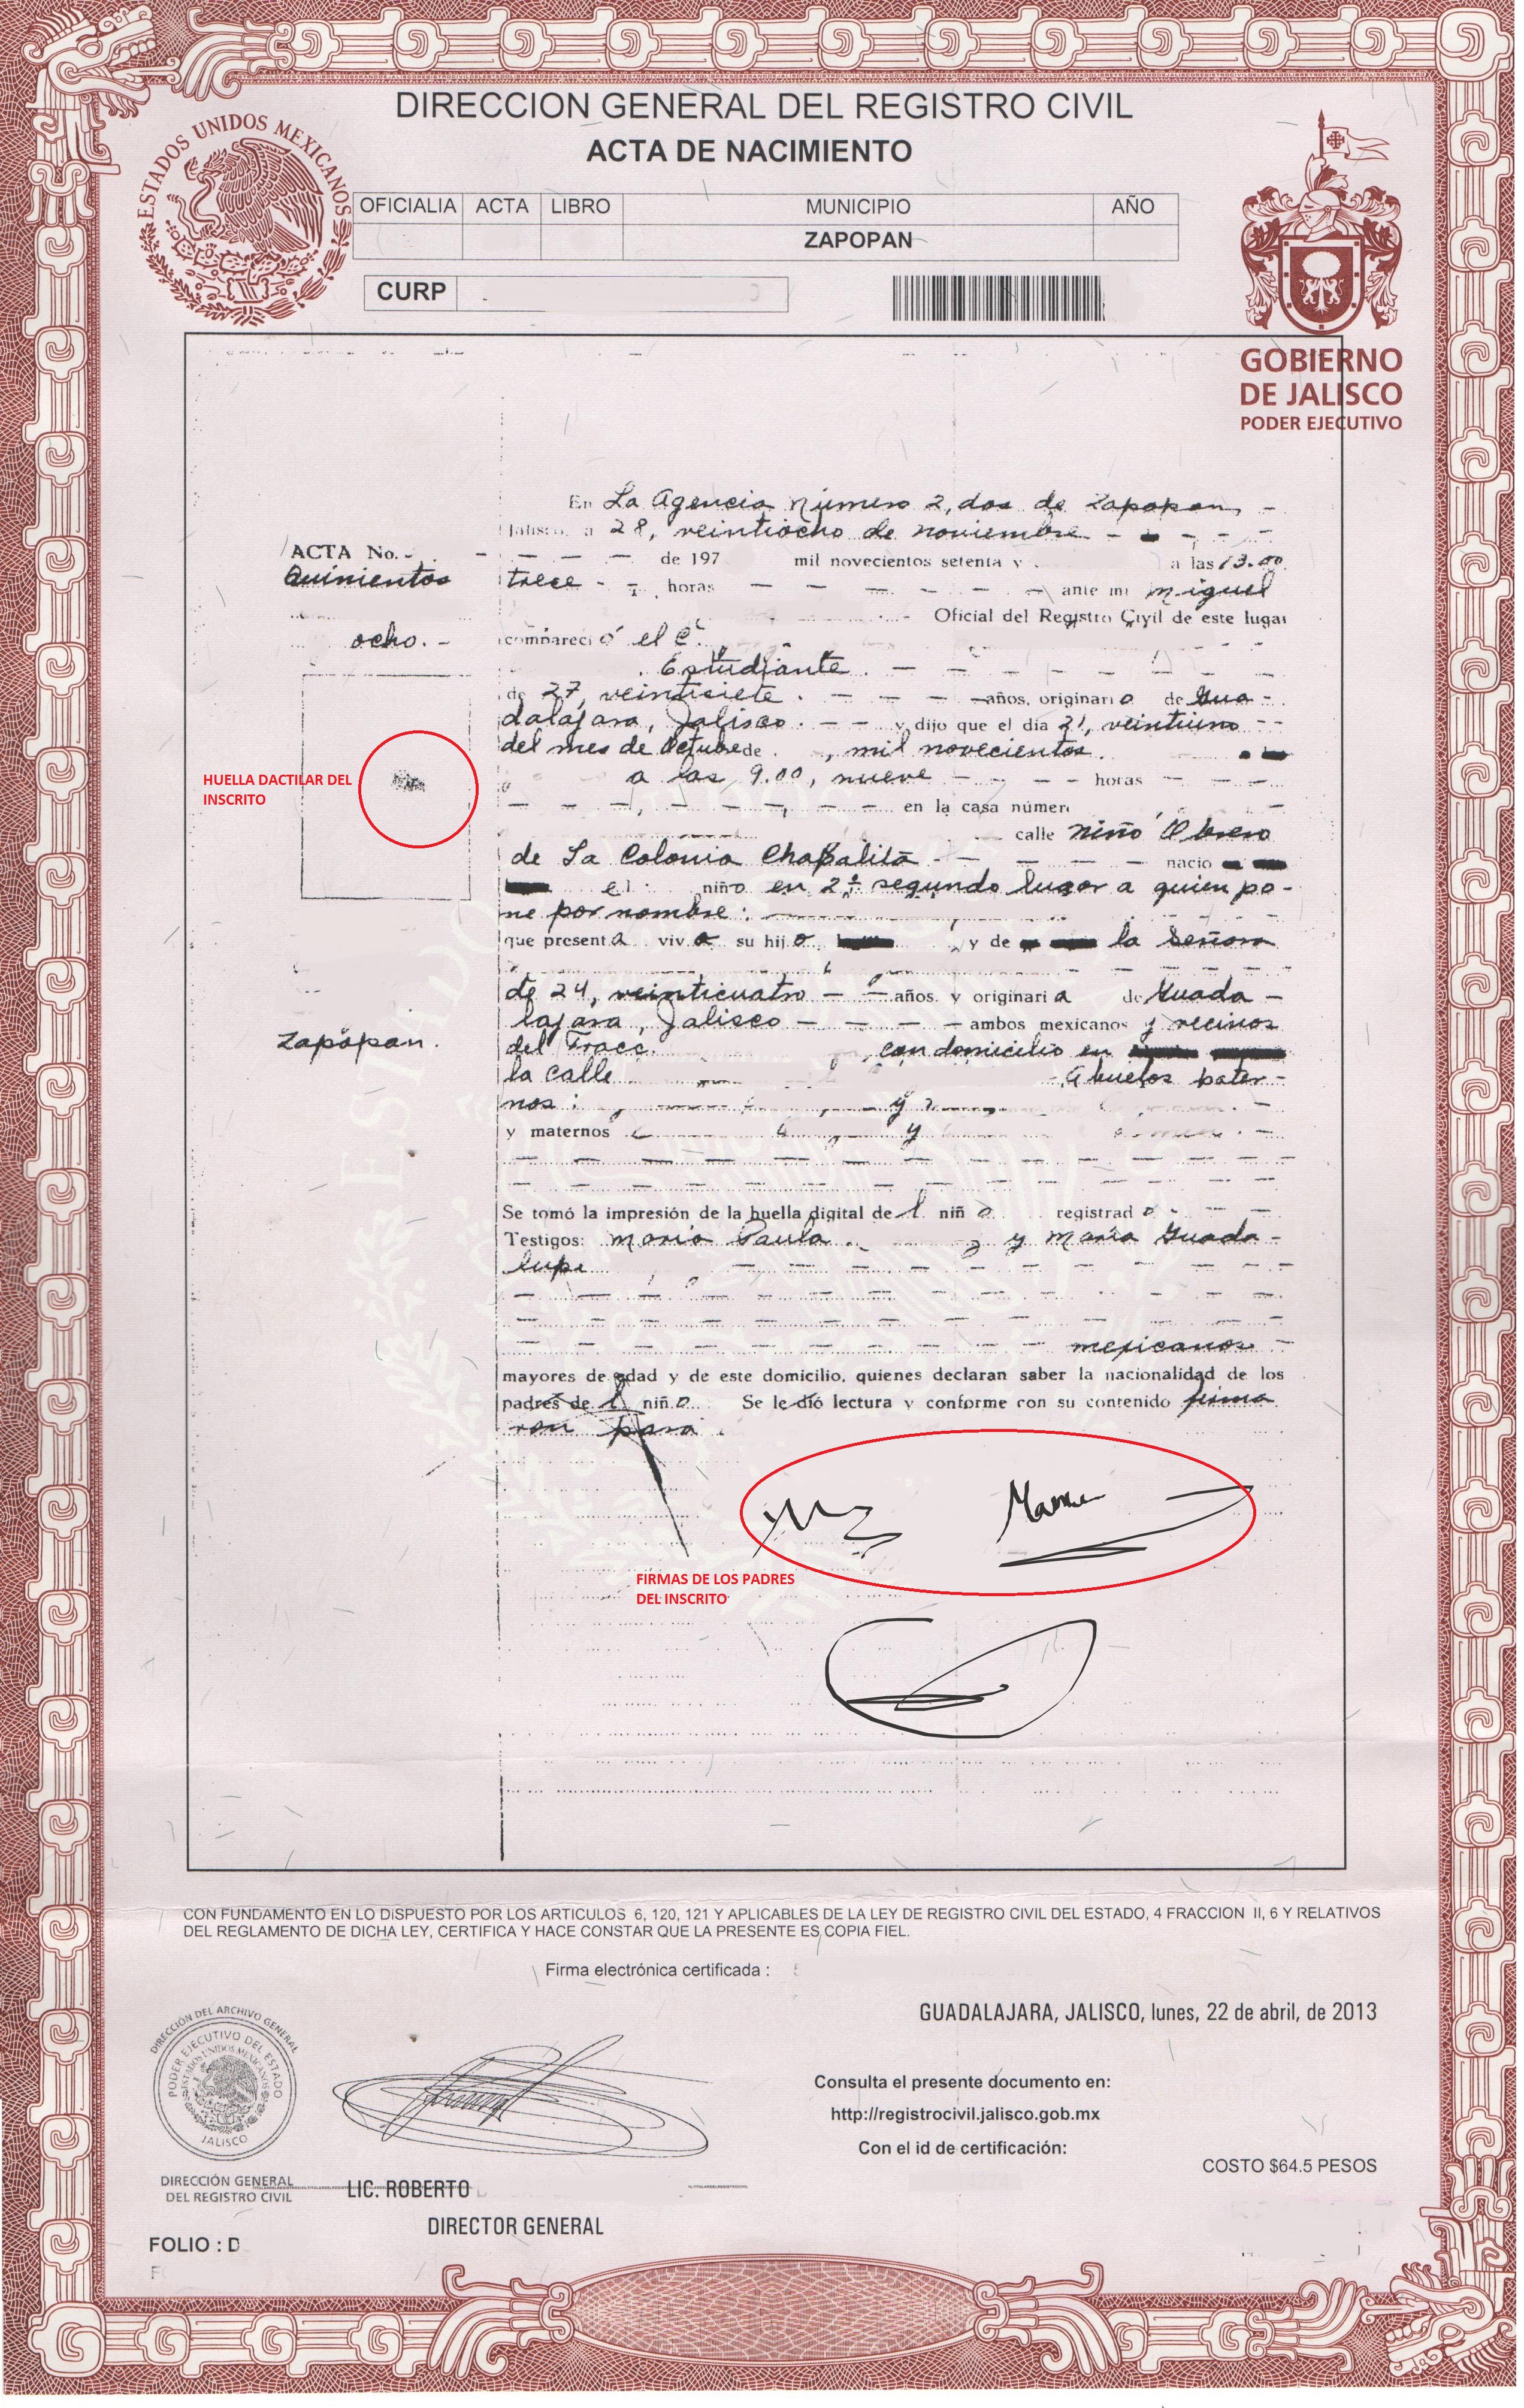 DIRECCION GENERAL DEL REGISTRO CIVIL
ACTA DE NACIMIENTO
ESTADOS UNIDOS MEXICANOS
OFICIALIA ACTA LIBRO MUNICIPIO AÑO
ZAPOPAN
CURP
GOBIERNO
DE JALISCO
PODER EJECUTIVO
En La Agencia número 2, dos de Zapopan,
Jalisco, a 28, veintiocho de noviembre
ACTA No. de 197 mil novecientos setenta y a las 13.00
Quinientos trece horas ante mi Miguel
Oficial del Registro Civil de este lugar
ocho. compareció el C.
Estudiante.
de 27, veintisiete. años, originario de Gua-
dalajara, Jalisco. y dijo que el día 21, veintiuno
del mes de Octubre de , mil novecientos.
a las 9.00, nueve horas
HUELLA DACTILAR DEL
INSCRITO
en la casa númer
calle Niño Obrero
de La Colonia Chapalita nacio
el niño en 2º segundo lugar a quien po-
ne por nombre:
que presenta vivo su hijo y de la Señora
de 24, veinticuatro años y originaria de Guada-
lajara, Jalisco ambos mexicanos y vecinos
Zapopan.
del Fracc. , con domicilio en
la calle Abuelos pater-
nos: y
y maternos y
Se tomó la impresión de la huella digital del niño registrado
Testigos: María Paula y María Guada-
lupe
mexicanos
mayores de edad y de este domicilio, quienes declaran saber la nacionalidad de los
padres del niño. Se le dió lectura y conforme con su contenido firma
ron para
FIRMAS DE LOS PADRES
DEL INSCRITO
CON FUNDAMENTO EN LO DISPUESTO POR LOS ARTICULOS 6, 120, 121 Y APLICABLES DE LA LEY DE REGISTRO CIVIL DEL ESTADO, 4 FRACCION II, 6 Y RELATIVOS
DEL REGLAMENTO DE DICHA LEY, CERTIFICA Y HACE CONSTAR QUE LA PRESENTE ES COPIA FIEL.
Firma electrónica certificada :
GUADALAJARA, JALISCO, lunes, 22 de abril, de 2013
DIRECCIÓN DEL ARCHIVO GENERAL
PODER EJECUTIVO DEL ESTADO
ESTADOS UNIDOS MEXICANOS
JALISCO
Consulta el presente documento en:
http://registrocivil.jalisco.gob.mx
Con el id de certificación:
COSTO $64.5 PESOS
DIRECCIÓN GENERAL
DEL REGISTRO CIVIL
LIC. ROBERTO
DIRECTOR GENERAL
FOLIO : D